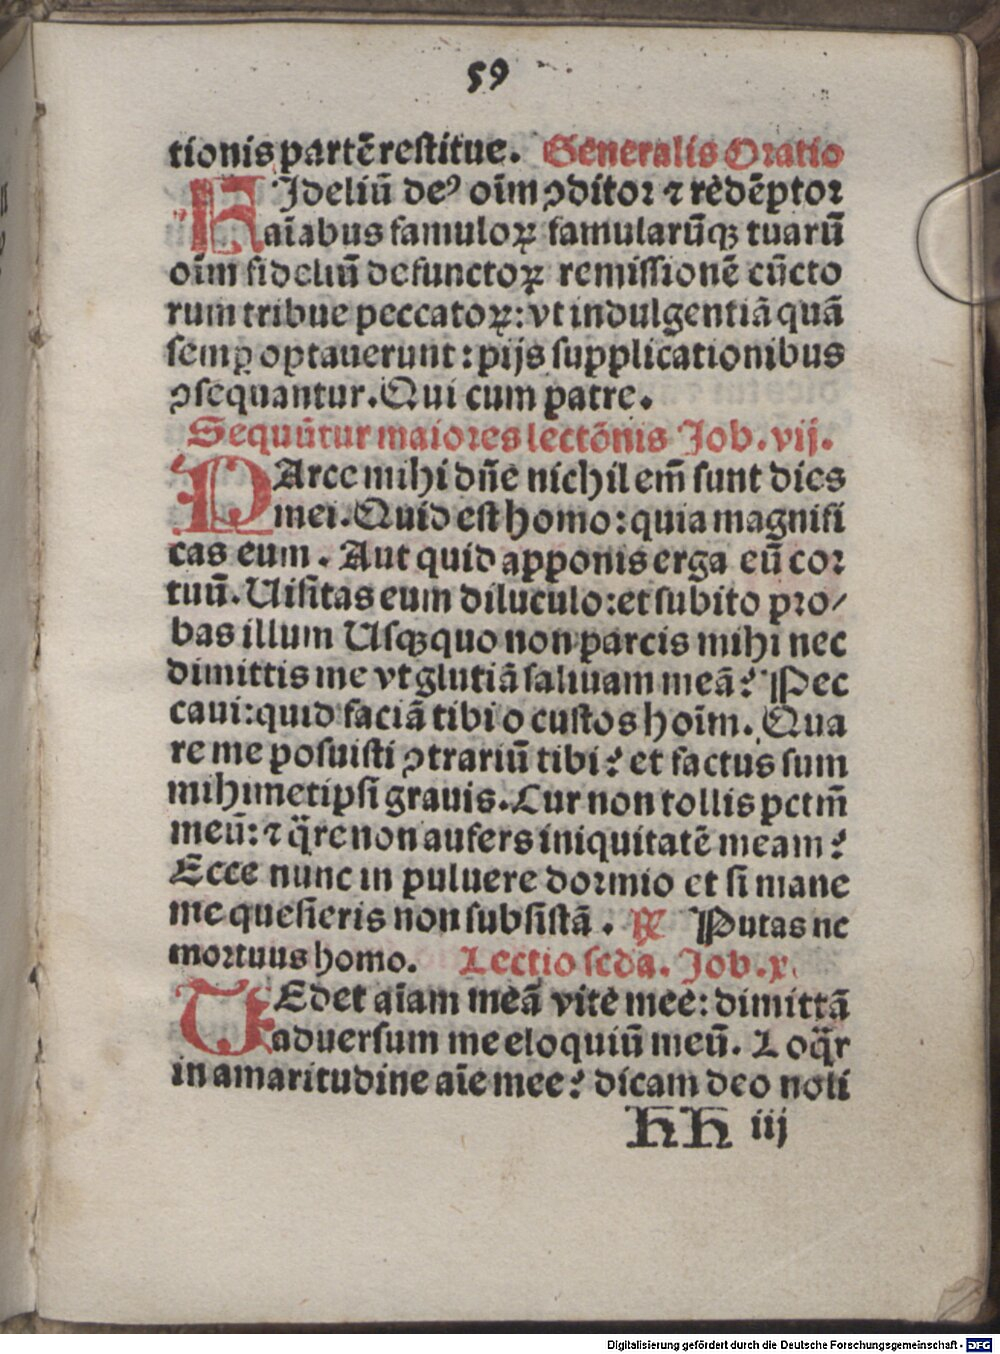 59
tionis partē restitue. Generalis Oratio
FIdeliū deꝰ oīm ꝯditor ⁊ redēptor
aīabus famuloꝝ famularūqꝫ tuarū
oīm fideliū defunctoꝝ remissionē cūcto
rum tribue peccatoꝝ: vt indulgentiā quā
semꝑ optauerunt: pijs supplicationibus
ꝯsequantur. Qui cum patre.
Sequūtur maiores lectōnis Job. vij.
PArce mihi dn̄e nichil em̄ sunt dies
mei. Quid est homo: quia magnifi
cas eum. Aut quid apponis erga eū cor
tuū. Uisitas eum diluculo: et subito pro/
bas illum Usqꝫquo non parcis mihi nec
dimittis me vt glutiā saliuam meā? Pec
caui: quid faciā tibi o custos hoīm. Qua
re me posuisti ꝯtrariū tibi? et factus sum
mihimetipsi grauis. Cur non tollis pctm̄
meū: ⁊ q̈re non aufers iniquitatē meam?
Ecce nunc in puluere dormio et si mane
me quesieris non subsistā. ℟ Putas ne
mortuus homo. Lectio scda. Job. x.
TEdet aīam meā vite mee: dimittā
aduersum me eloquiū meū. Loq̈r
in amaritudine aīe mee? dicam deo noli
hh iij
Digitalisierung gefördert durch die Deutsche Forschungsgemeinschaft - DFG